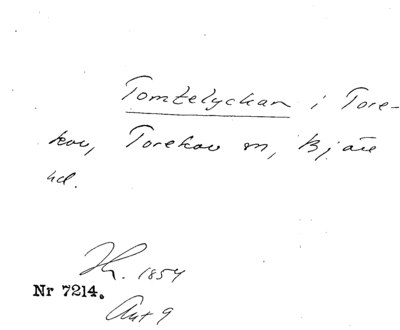 Tomtelyckan i Tore-
kov, Torekov m, Bjäre
hd.
Th. 1854
Nr 7214.
Akt 9